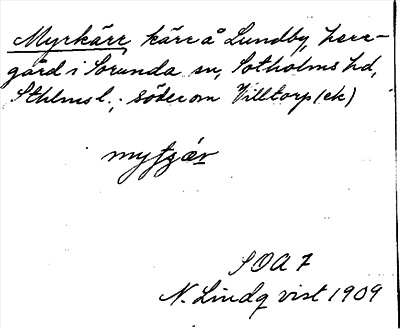 Myrkärr, kärr å Lundby, herr-
gård i Sorunda sn, Sotholms hd,
Sthlms l., söder om Villtorp (ek)
SOA 7
N. Lindq vist 1909